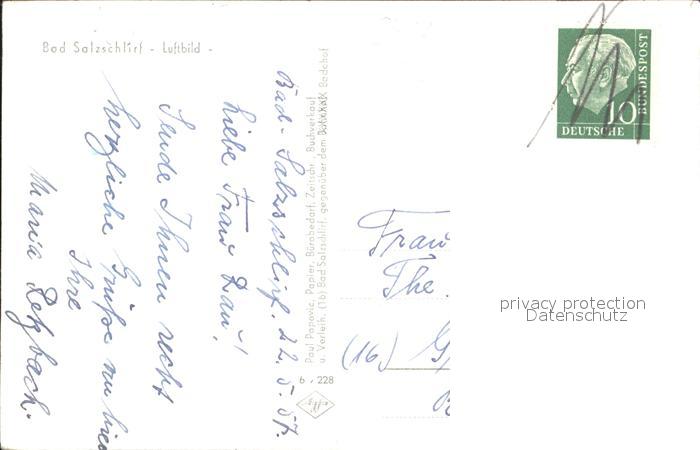 Bad Salzschlirf - Luftbild -
Bad-Salzschlirf. 22.5.57.
Liebe Frau Rau!
Sende Ihnen recht
herzliche Grüße von hier
Ihre
Maria Retzbach.
Paul Popovic, Papier, Bürobedarf, Zeitschr., Buchverkauf
u. Verleih, (16) Bad Salzschlirf, gegenüber dem Badehof
6 . 228
10
DEUTSCHE
BUNDESPOST
Frau
The.
(16) G
privacy protection
Datenschutz